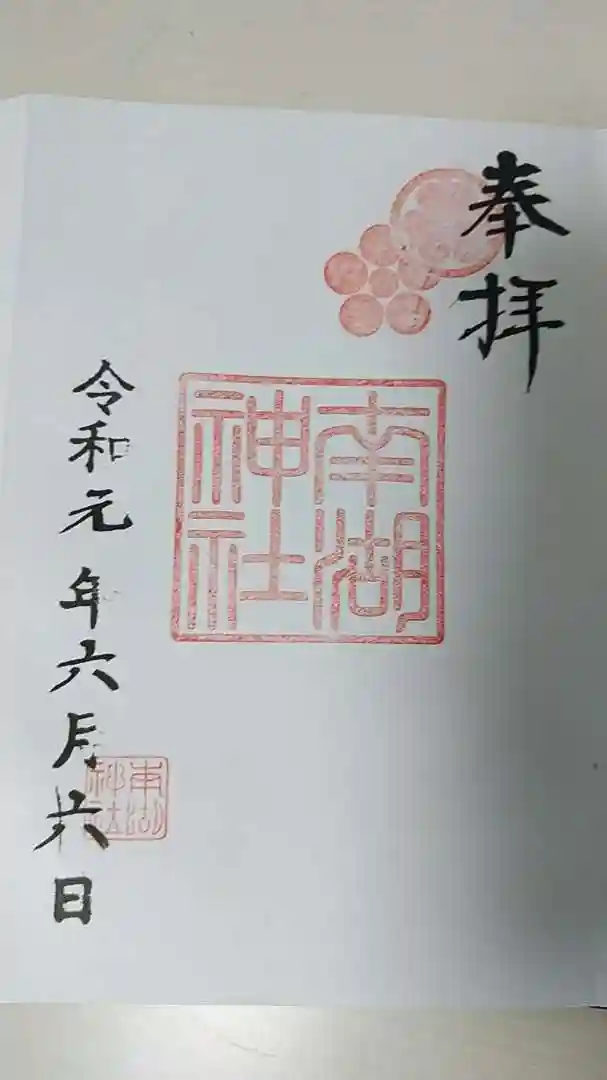 奉拝
南湖
神社
令和元年六月六日
南湖
神社